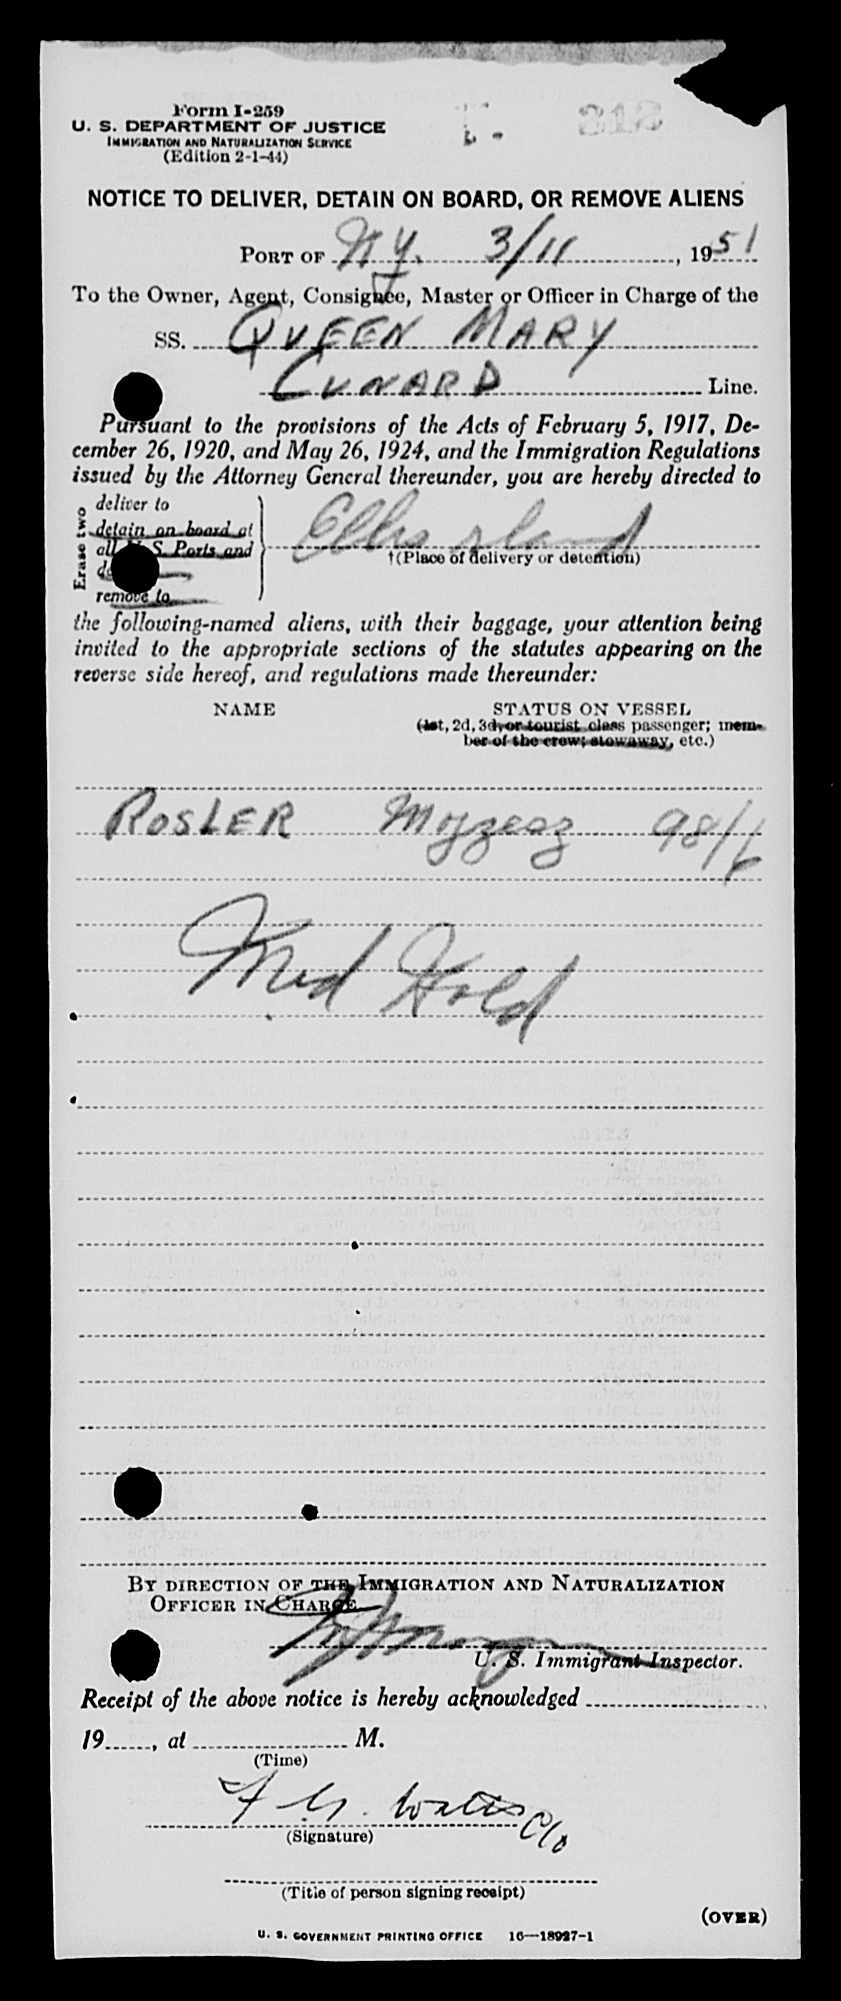 Form I-259
U. S. DEPARTMENT OF JUSTICE
IMMIGRATION AND NATURALIZATION SERVICE
(Edition 2-1-44)
313
NOTICE TO DELIVER, DETAIN ON BOARD, OR REMOVE ALIENS
PORT OF N.Y. 3/11, 1951
To the Owner, Agent, Consignee, Master or Officer in Charge of the
SS. QUEEN MARY
CUNARD Line.
Pursuant to the provisions of the Acts of February 5, 1917, De-
cember 26, 1920, and May 26, 1924, and the Immigration Regulations
issued by the Attorney General thereunder, you are hereby directed to
Erase two
deliver to
detain on board at
all U. S. Ports and
remove to
Ellis Island
†(Place of delivery or detention)
the following-named aliens, with their baggage, your attention being
invited to the appropriate sections of the statutes appearing on the
reverse side hereof, and regulations made thereunder:
NAME STATUS ON VESSEL
(1st, 2d, 3d, or tourist class passenger; mem-
ber of the crew; stowaway, etc.)
ROSLER Mojzesz 98/6
Med Hold
BY DIRECTION OF THE IMMIGRATION AND NATURALIZATION
OFFICER IN CHARGE
U. S. Immigrant Inspector.
Receipt of the above notice is hereby acknowledged
19......, at M.
(Time)
Watts
(Signature)
(Title of person signing receipt)
(OVER)
U. S. GOVERNMENT PRINTING OFFICE 16—18927-1